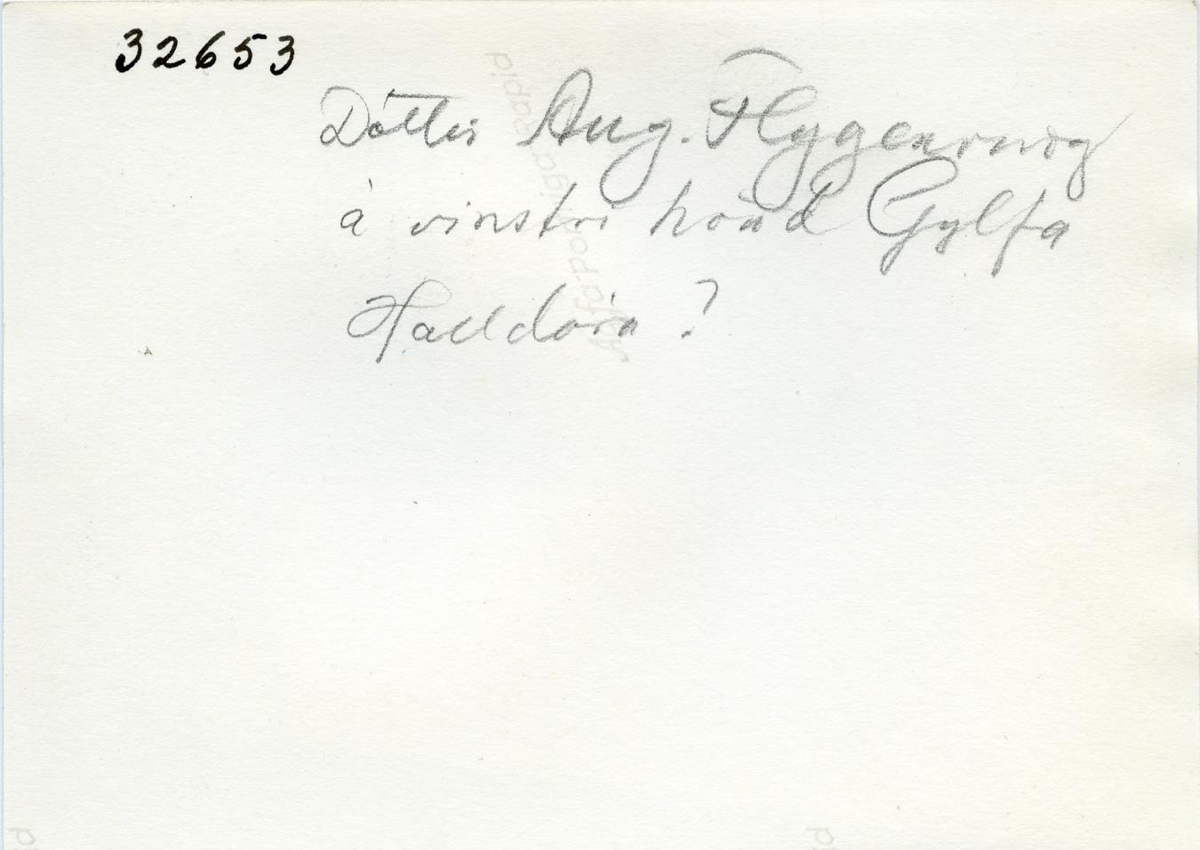 32653
Dóttir Aug. Flygenring
á vinstri hönd Gylfa
Halldóra ?
Agfa rapid